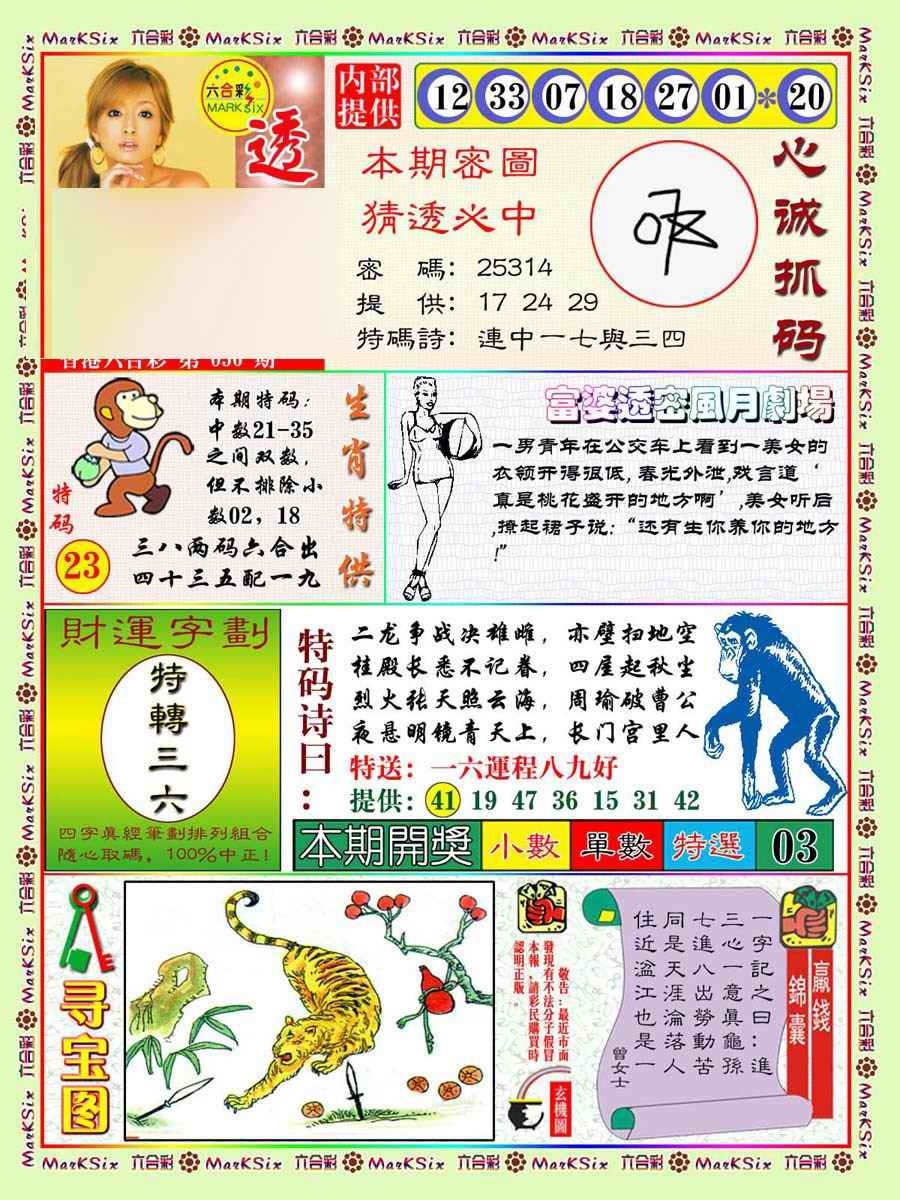 MarKSix 六合彩 MarKSix 六合彩 MarKSix 六合彩 MarKSix 六合彩 MarKSix 六合彩
六合彩
MARKSix
透
内部
提供
12 33 07 18 27 01 * 20
本期密圖
猜透必中
密 碼: 25314
提 供: 17 24 29
特碼詩: 連中一七與三四
心诚抓码
香港六合彩 第 030 期
本期特码:
中数21-35
之间双数,
但不排除小
数02, 18
生肖特供
特码
23
三八两码六合出
四十三五配一九
富婆透密風月劇場
一男青年在公交车上看到一美女的
衣领开得很低, 春光外泄,戏言道 ‘
真是桃花盛开的地方啊’,美女听后
,撩起裙子说: “还有生你养你的地方
!”
財運字劃
特轉三六
四字真經筆劃排列組合
隨心取碼, 100%中正!
特码诗曰:
二龙争战决雄雌, 赤壁扫地空
桂殿长悉不记春, 四屋起秋尘
烈火张天照云海, 周瑜破曹公
夜悬明镜青天上, 长门宫里人
特送: 一六運程八九好
提供: 41 19 47 36 15 31 42
本期開獎 小數 單數 特選 03
寻宝图
敬告:最近市面
發現有不法分子假冒
本報,請彩民購買時
認明正版。
玄機圖
一字記之曰:進
三心一意真龜孫
七進八出勞動苦
同是天涯淪落人
住近湓江也是一
曾女士
贏錢
錦囊
MarKSix 六合彩 MarKSix 六合彩 MarKSix 六合彩 MarKSix 六合彩 MarKSix 六合彩